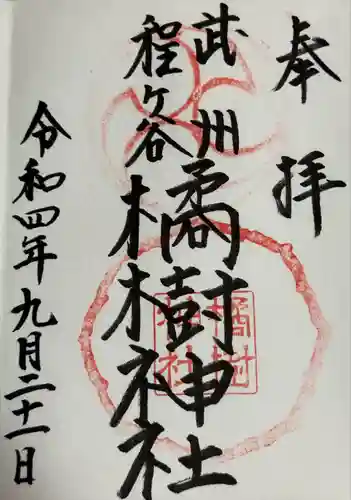 奉拝
武州
程ケ谷
橘樹神社
橘樹
神社
令和四年九月二十一日